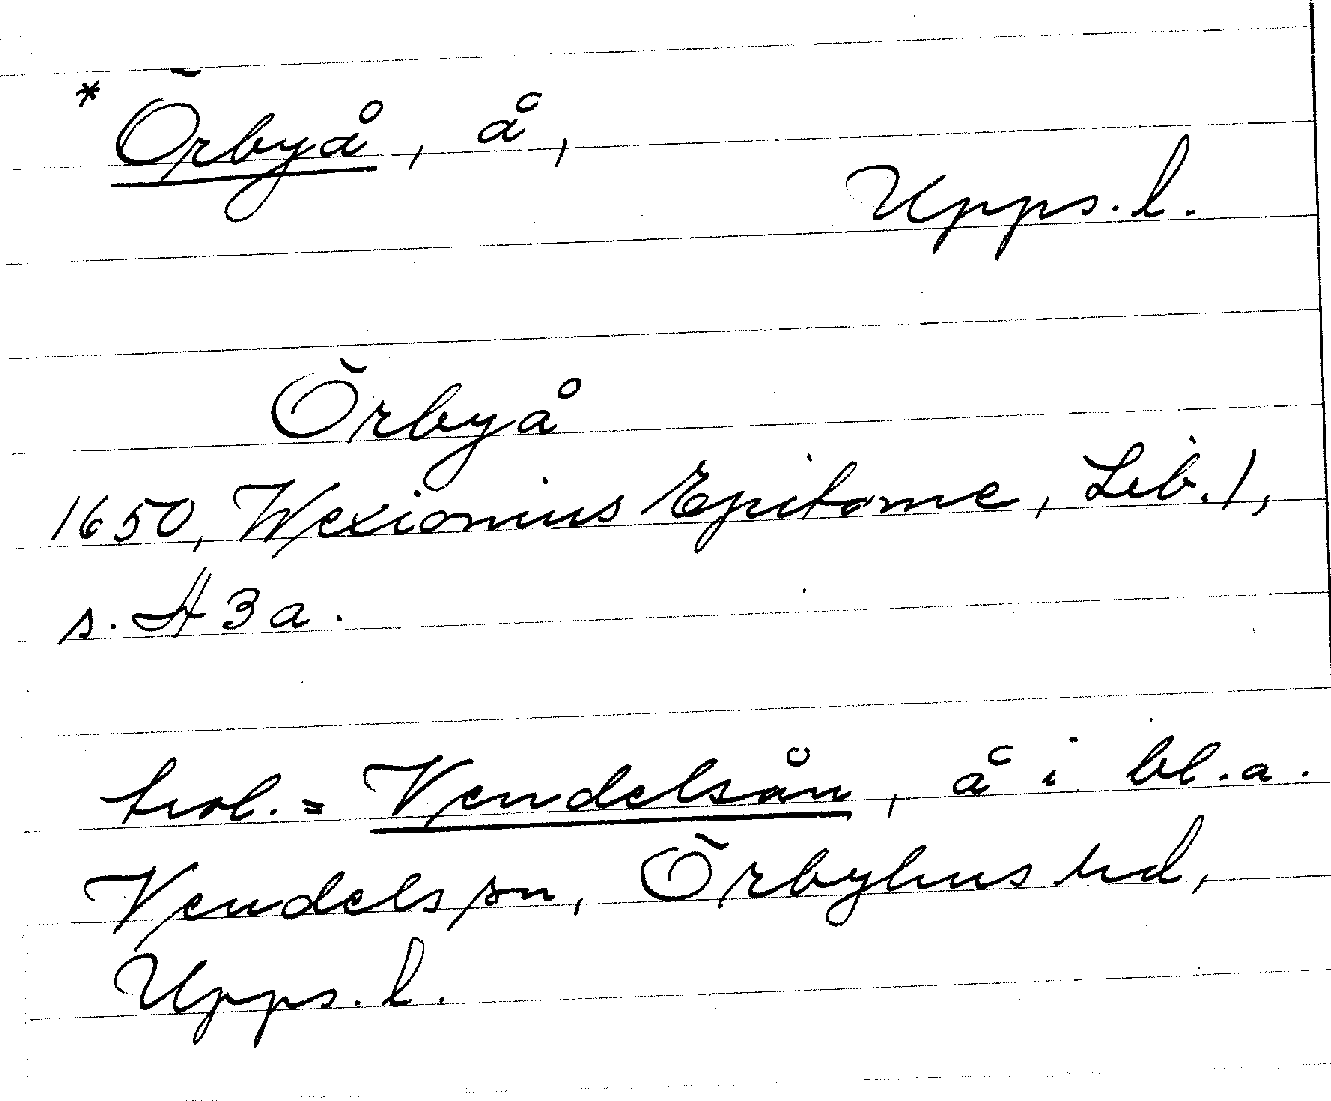 * Örbyå, å,
Upps. l.
Örbyå
1650, Wexionius Epitome, Lib. 1,
s. A 3 a.
trol. = Vendelsån, å i bl. a.
Vendels sn, Örbyhus hd,
Upps. l.